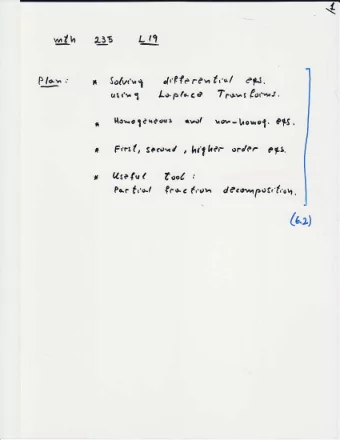 1
mth 235 L19
Plan: * Solving differential eqs.
using Laplace Transforms.
* Homogeneous and non-homog. eqs.
* First, second, higher order eqs.
* Useful tool:
Partial fraction decomposition.
(6.2)